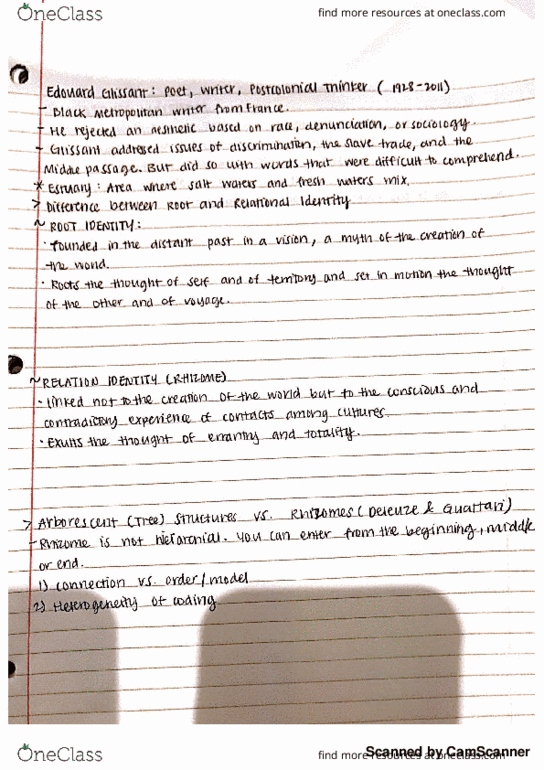 OneClass find more resources at oneclass.com
Edouard Glissant: Poet, Writer, Postcolonial Thinker (1928-2011)
- Black Metropolitan writer from France.
- He rejected an aesthetic based on race, denunciation, or sociology.
- Glissant addressed issues of discrimination, the slave trade, and the
Middle passage. But did so with words that were difficult to comprehend.
* Estuary: Area where salt waters and fresh waters mix.
> Difference between Root and Relational Identity
~ ROOT IDENTITY:
· founded in the distant past in a vision, a myth of the creation of
the world.
· Roots the thought of self and of territory and set in motion the thought
of the other and of voyage.
~ RELATION IDENTITY (RHIZOME)
· linked not to the creation of the world but to the conscious and
contradictory experience of contacts among cultures.
· Exults the thought of errantry and totality.
> Arborescent (Tree) structures vs. Rhizomes (Deleuze & Guattari)
- Rhizome is not hierarchial. You can enter from the beginning, middle
or end.
1) connection vs. order/model
2) Heterogeneity of coding
OneClass find more resources at oneclass.com
Scanned by CamScanner